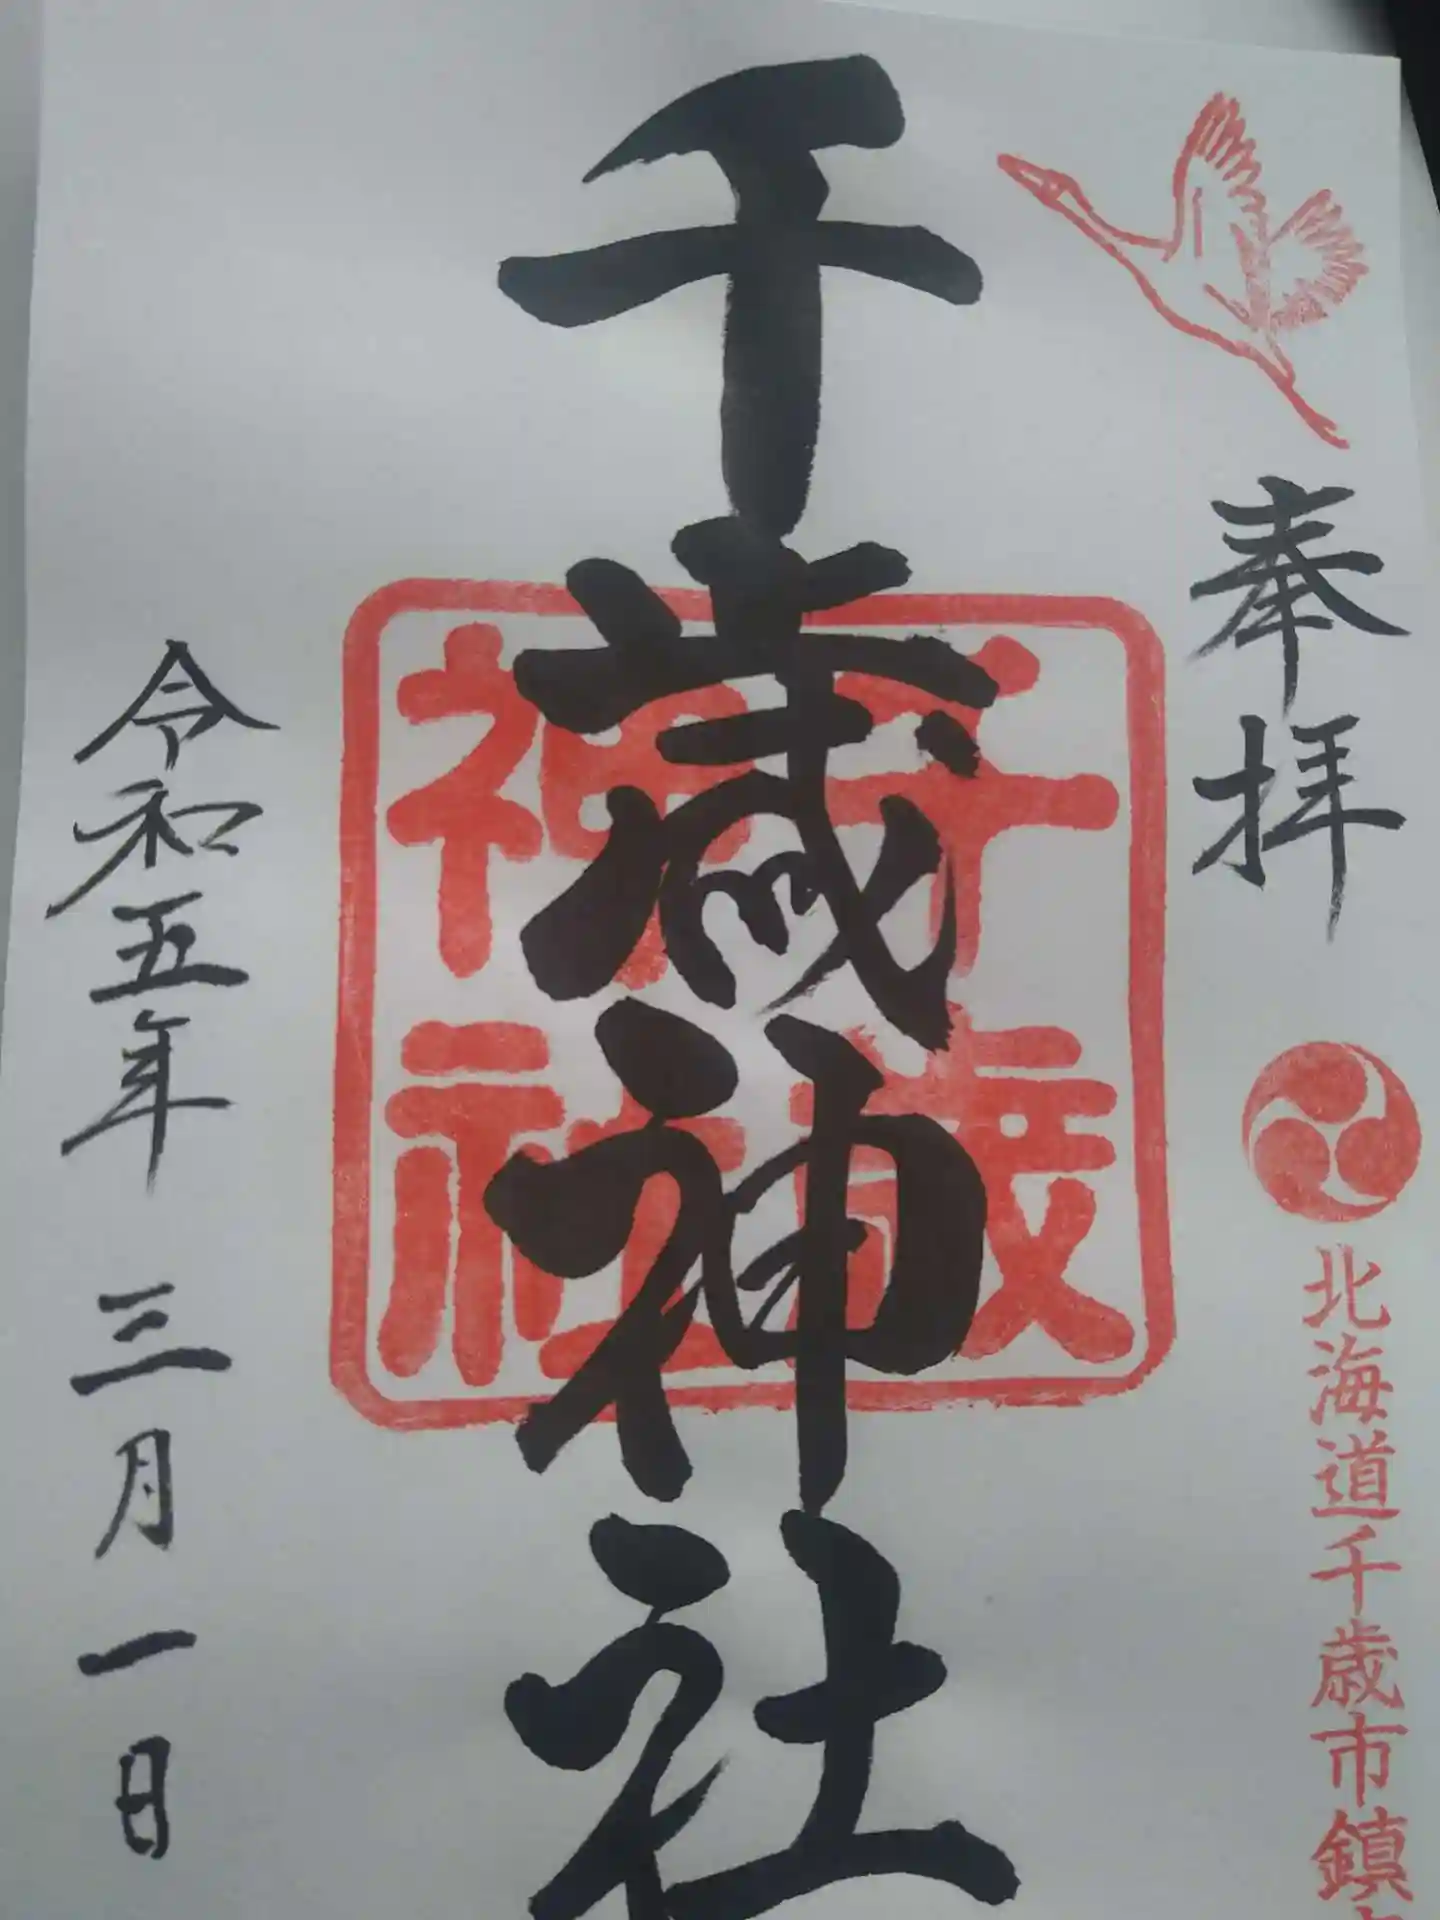 奉拝
北海道千歳市鎮
千歳神社
千歳
神社
令和五年 三月一日